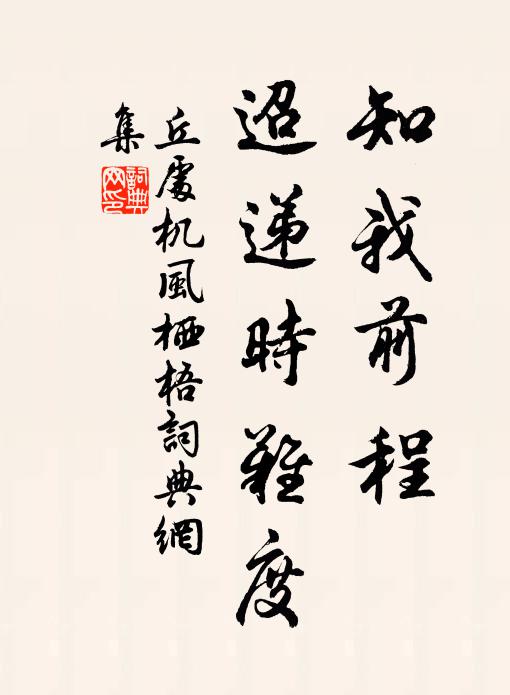 知我前程
迢递時難度
丘處机風栖梧詞典網
集
詞典
网印